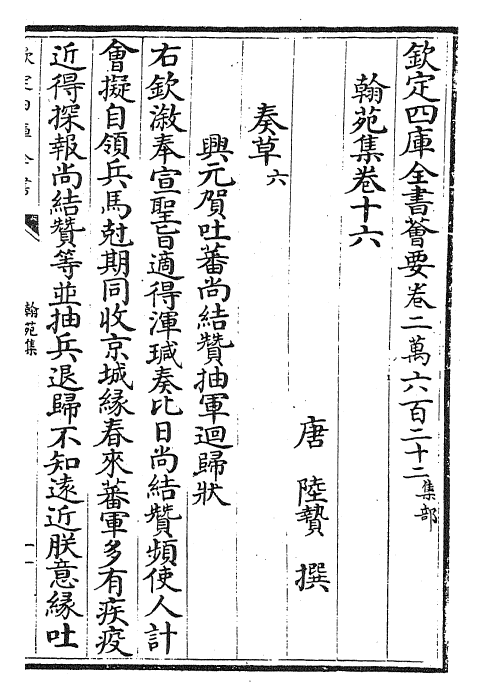 欽定四庫全書薈要卷二萬六百二十二集部
翰苑集卷十六
唐 陸贄 撰
奏草六
興元賀吐蕃尚結贊抽軍迴歸狀
右欽漵奉宣聖旨適得渾瑊奏比日尚結贊頻使人計
會擬自領兵馬尅期同收京城緣春來蕃軍多有疾疫
近得探報尚結贊等並抽兵退歸不知遠近朕意緣吐
欽定四庫全書
翰苑集
一